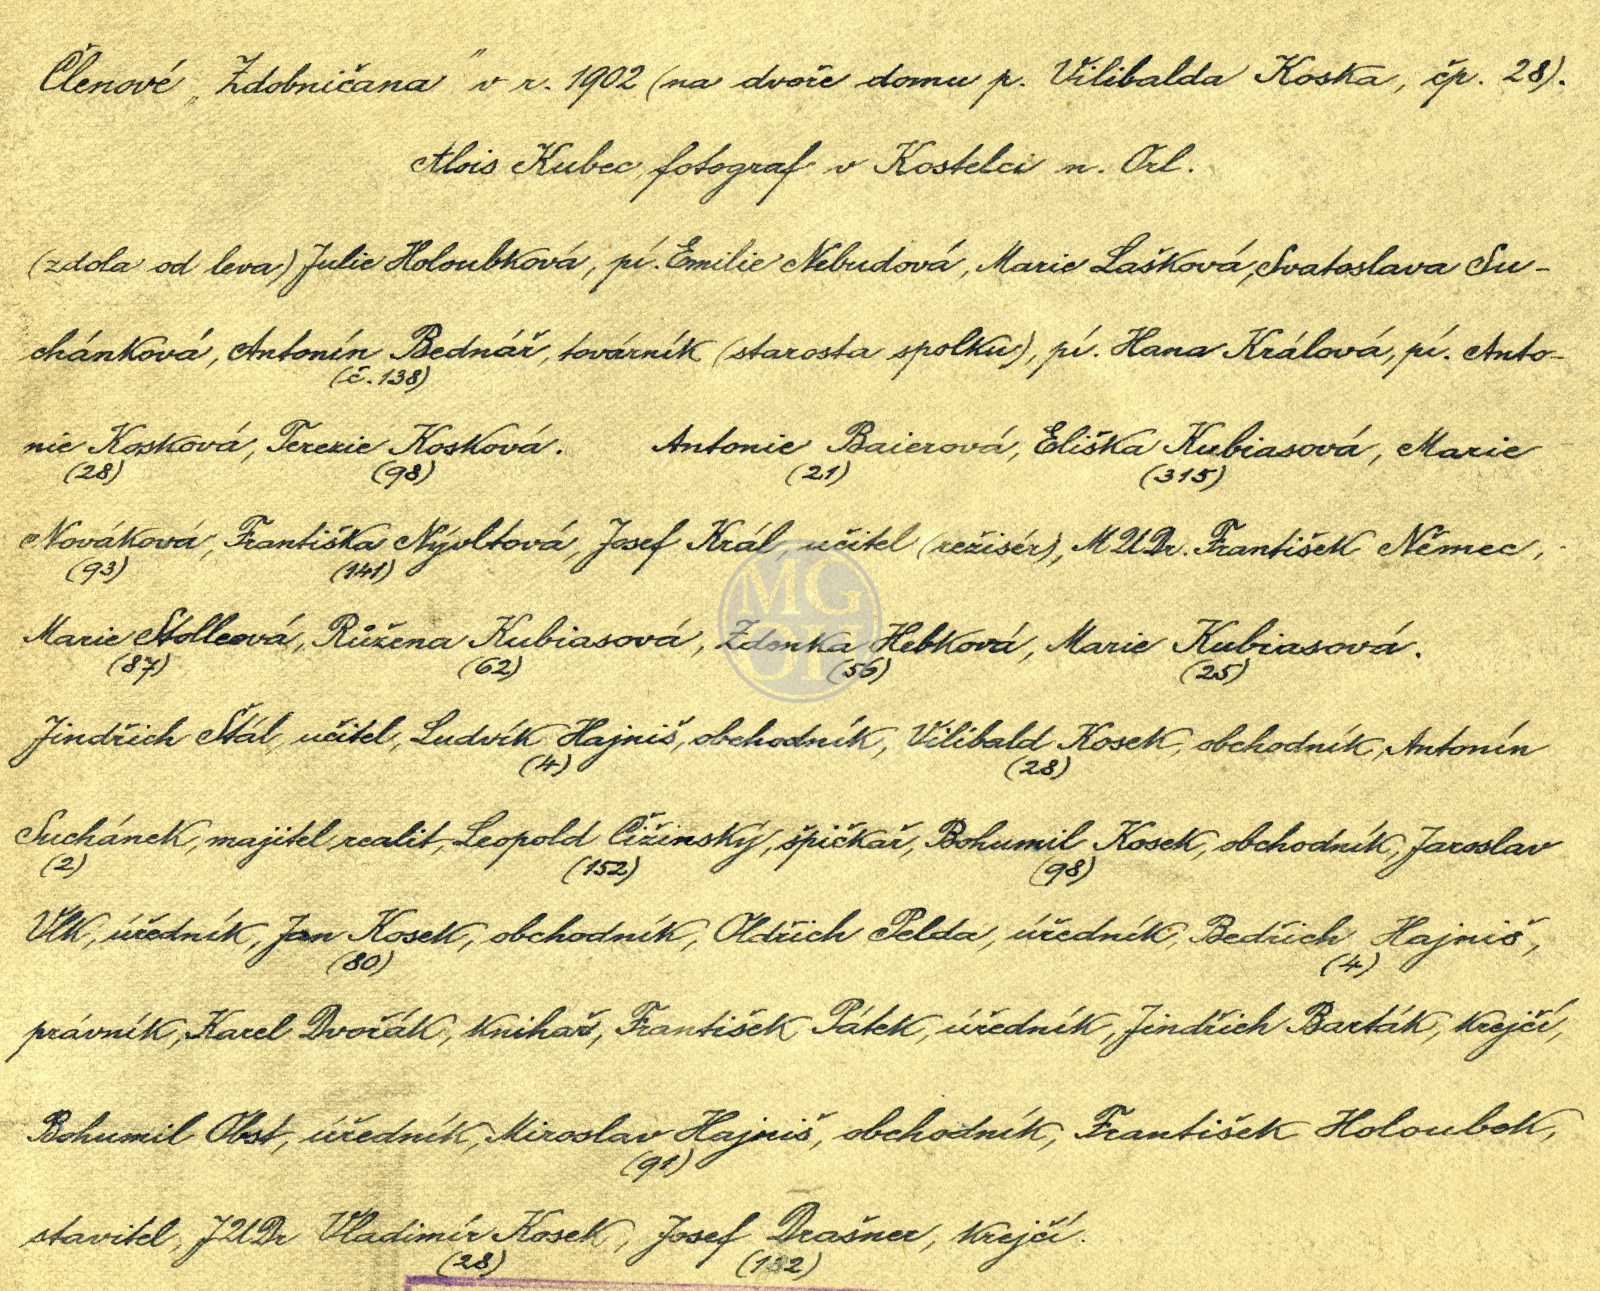 Členové „Zdobničana" v r. 1902 (na dvoře domu p. Vilibalda Koska, čp. 28).
Alois Kubec, fotograf v Kostelci n. Orl.
(zdola od leva) Julie Holoubková, pí. Emilie Nebudová, Marie Lašková, Svatoslava Su-
chánková, Antonín Bednář, továrník (starosta spolku), pí. Hana Králová, pí. Anto-
(č. 138)
nie Kosková, Terezie Kosková. Antonie Baierová, Eliška Kubiasová, Marie
(28) (98) (21) (315)
Nováková, Františka Nývltová, Josef Král, učitel (režisér), MUDr. František Němec,
(93) (141)
Marie Stolleová, Růžena Kubiasová, Zdenka Hebková, Marie Kubiasová.
(87) (62) (56) (25)
MG
OH
Jindřich Štál, učitel, Ludvík Hajniš, obchodník, Vilibald Kosek, obchodník, Antonín
(4) (28)
Suchánek, majitel realit, Leopold Čižinský, špičkař, Bohumil Kosek, obchodník, Jaroslav
(2) (152) (98)
Vlk, úředník, Jan Kosek, obchodník, Oldřich Pelda, úředník, Bedřich Hajniš,
(80) (4)
právník, Karel Dvořák, knihař, František Pátek, úředník, Jindřich Barták, krejčí,
Bohumil Obst, úředník, Miroslav Hajniš, obchodník, František Holoubek,
(91)
stavitel, JUDr Vladimír Kosek, Josef Drašner, krejčí.
(28) (132)